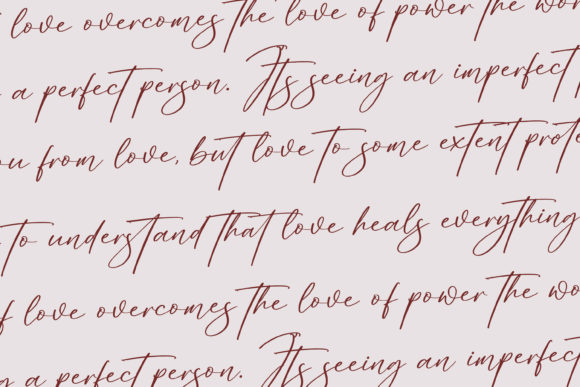 love overcomes the love of power the wor
a perfect person. Its seeing an imperfect
ou from love, but love to some extent prote
to understand that love heals everything
f love overcomes the love of power the wo
g a perfect person. Its seeing an imperfect